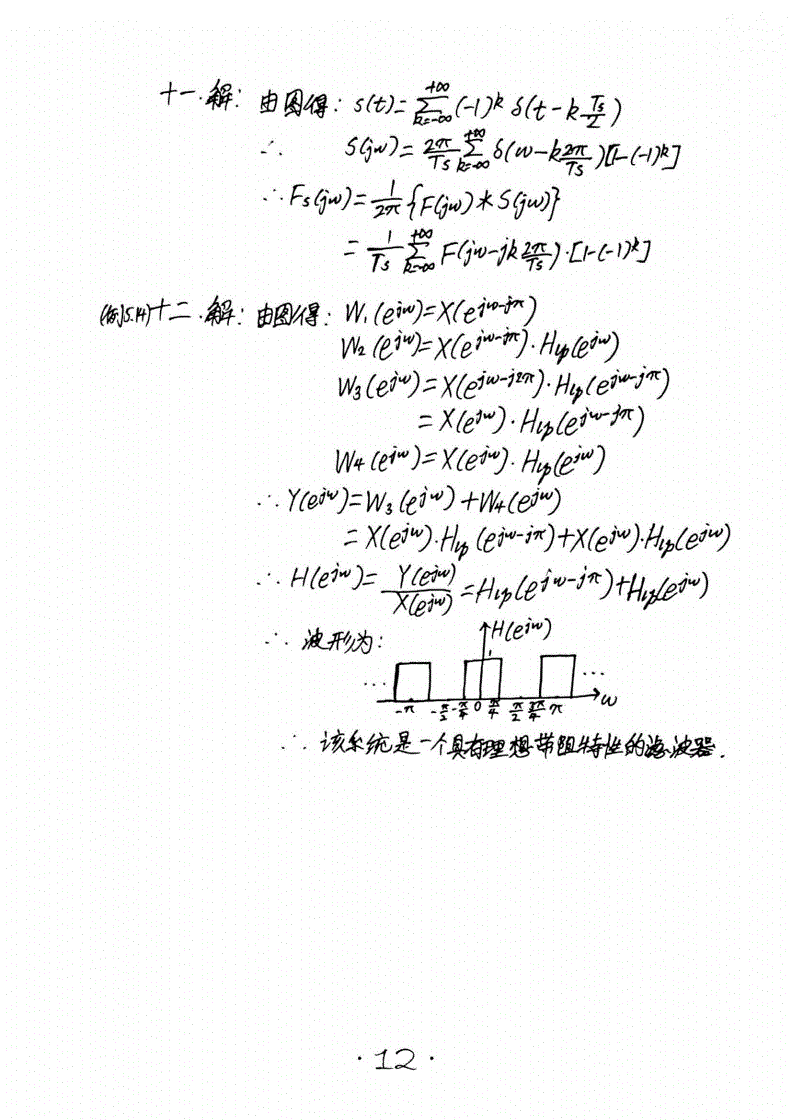 十一.解: 由图得: s(t)=∑_{k=-∞}^{+∞}(-1)^k δ(t-k Ts/2)
∴ S(jω)=2π/Ts ∑_{k=-∞}^{+∞} δ(ω-k 2π/Ts)[1-(-1)^k]
∴ Fs(jω)=1/2π {F(jω)*S(jω)}
=1/Ts ∑_{k=-∞}^{+∞} F(jω-jk 2π/Ts)·[1-(-1)^k]
(例5.14)十二.解: 由图得: W₁(e^{jω})=X(e^{jω-jπ})
W₂(e^{jω})=X(e^{jω-jπ})·H_{lp}(e^{jω})
W₃(e^{jω})=X(e^{jω-j2π})·H_{lp}(e^{jω-jπ})
=X(e^{jω})·H_{lp}(e^{jω-jπ})
W₄(e^{jω})=X(e^{jω})·H_{lp}(e^{jω})
∴ Y(e^{jω})=W₃(e^{jω})+W₄(e^{jω})
=X(e^{jω})·H_{lp}(e^{jω-jπ})+X(e^{jω})·H_{lp}(e^{jω})
∴ H(e^{jω})=Y(e^{jω})/X(e^{jω})=H_{lp}(e^{jω-jπ})+H_{lp}(e^{jω})
∴ 波形为:
H(e^{jω})
1
... ...
-π -π/2 -π/4 0 π/4 π/2 3π/4 π ω
∴ 该系统是一个具有理想带阻特性的滤波器.
·12·